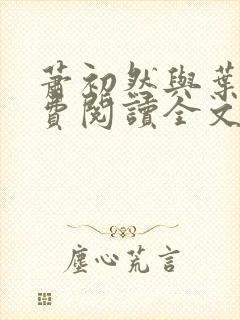 蕭初然與葉
費閱讀全文
塵心荒言